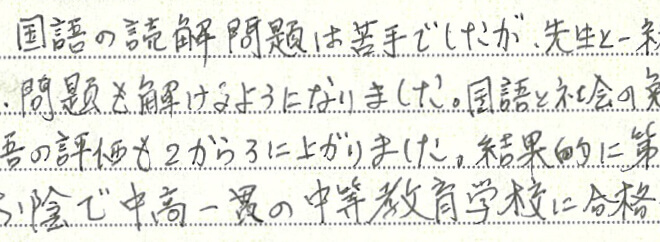 国語の読解問題は苦手でしたが、先生と一
、問題も解けるようになりました。国語と社会の
語の評価も2から3に上がりました。結果的に第
陰で中高一貫の中等教育学校に合格